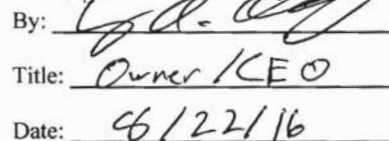 By:
Title: Owner / CEO
Date: 8/22/16